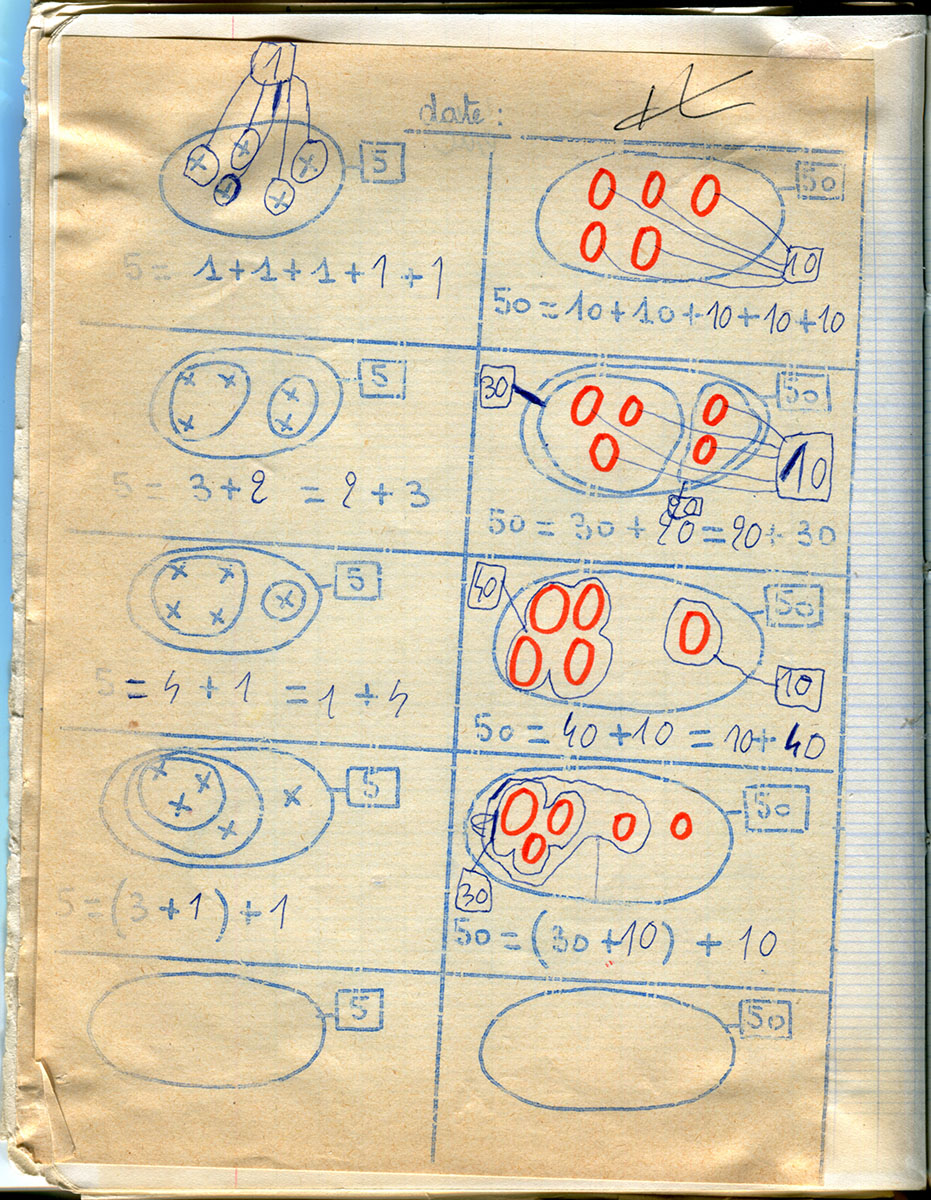 1
date :
5
5 = 1+1+1+1+1
50
10
50 = 10+10+10+10+10
5
5 = 3+2 = 2+3
30
50
10
20
50 = 30 + 20 = 20 + 30
5
5 = 4 + 1 = 1 + 4
40
50
10
50 = 40 +10 = 10+ 40
5
5 = (3 +1) + 1
50
30
50 = (30 +10) + 10
5
50